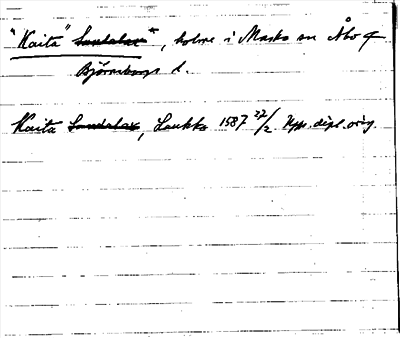 "Kaita" Sandalax", holme i Masko sn Åbo o
Björneborgs l.
Kaita Sandalax, Laukko 1587 27/2 Upps. dipl. orig.